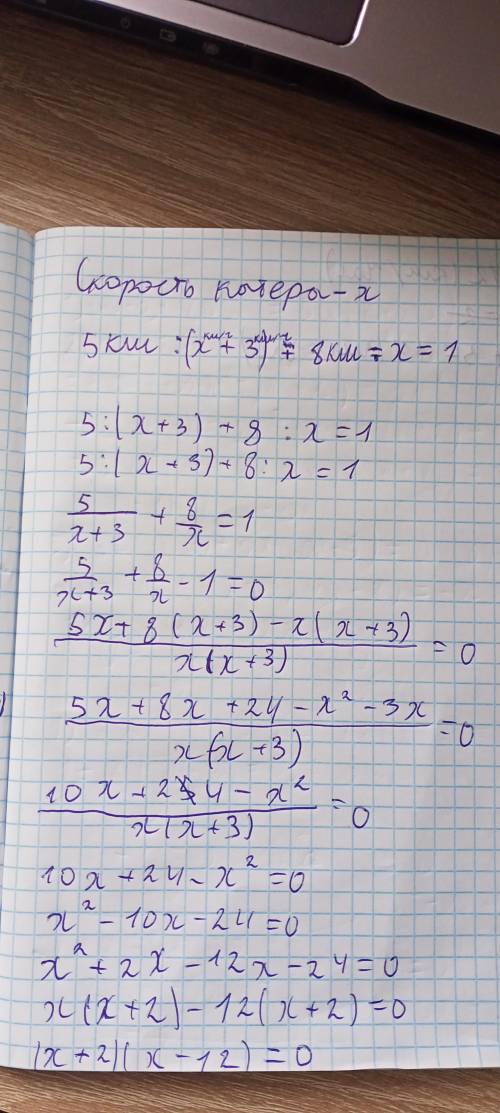 Скорость катера - x
5 км : (x км/ч + 3 км/ч) + 8 км ÷ x = 1
5 : (x + 3) + 8 : x = 1
5 : (x + 3) + 8 : x = 1
5/(x+3) + 8/x = 1
5/(x+3) + 8/x - 1 = 0
(5x + 8(x+3) - x(x+3))/(x(x+3)) = 0
(5x + 8x + 24 - x² - 3x)/(x(x+3)) = 0
(10x + 24 - x²)/(x(x+3)) = 0
10x + 24 - x² = 0
x² - 10x - 24 = 0
x² + 2x - 12x - 24 = 0
x(x+2) - 12(x+2) = 0
(x+2)(x-12) = 0